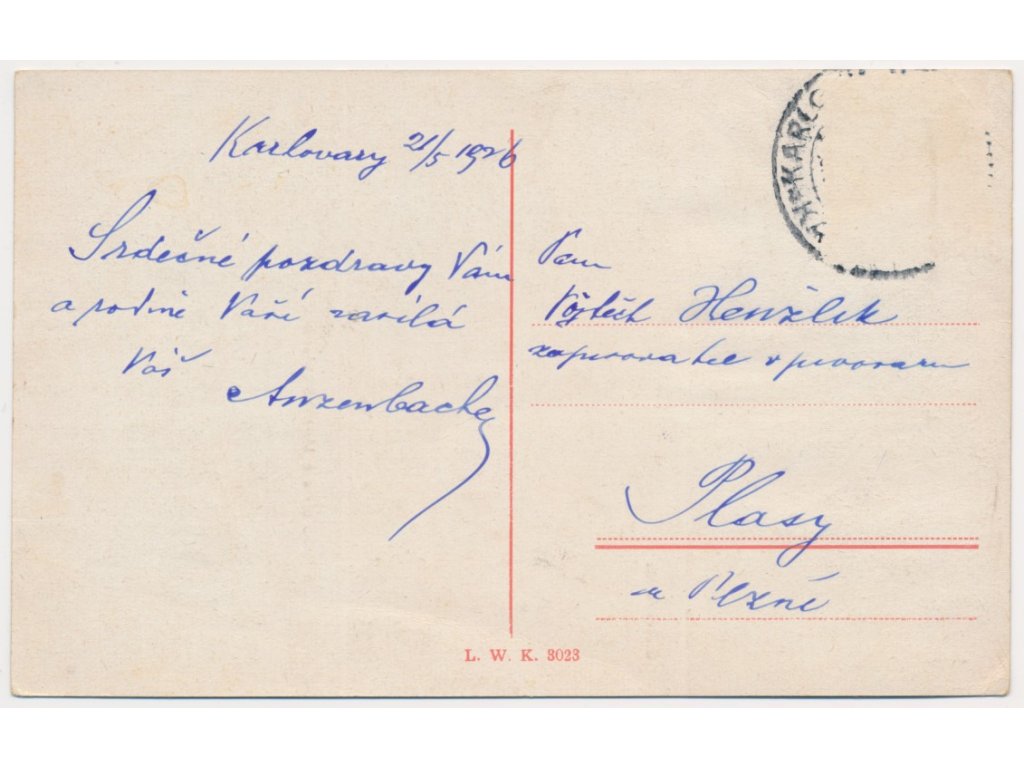 Karlovary 21/5 1926
Srdečné pozdravy Vám
a rodině Vaší zasílá
Váš
Anzenbacher
Pan
Vojtěch Henžlík
v pivovaru
Plasy
u Plzně
L. W. K. 3023
KARLO